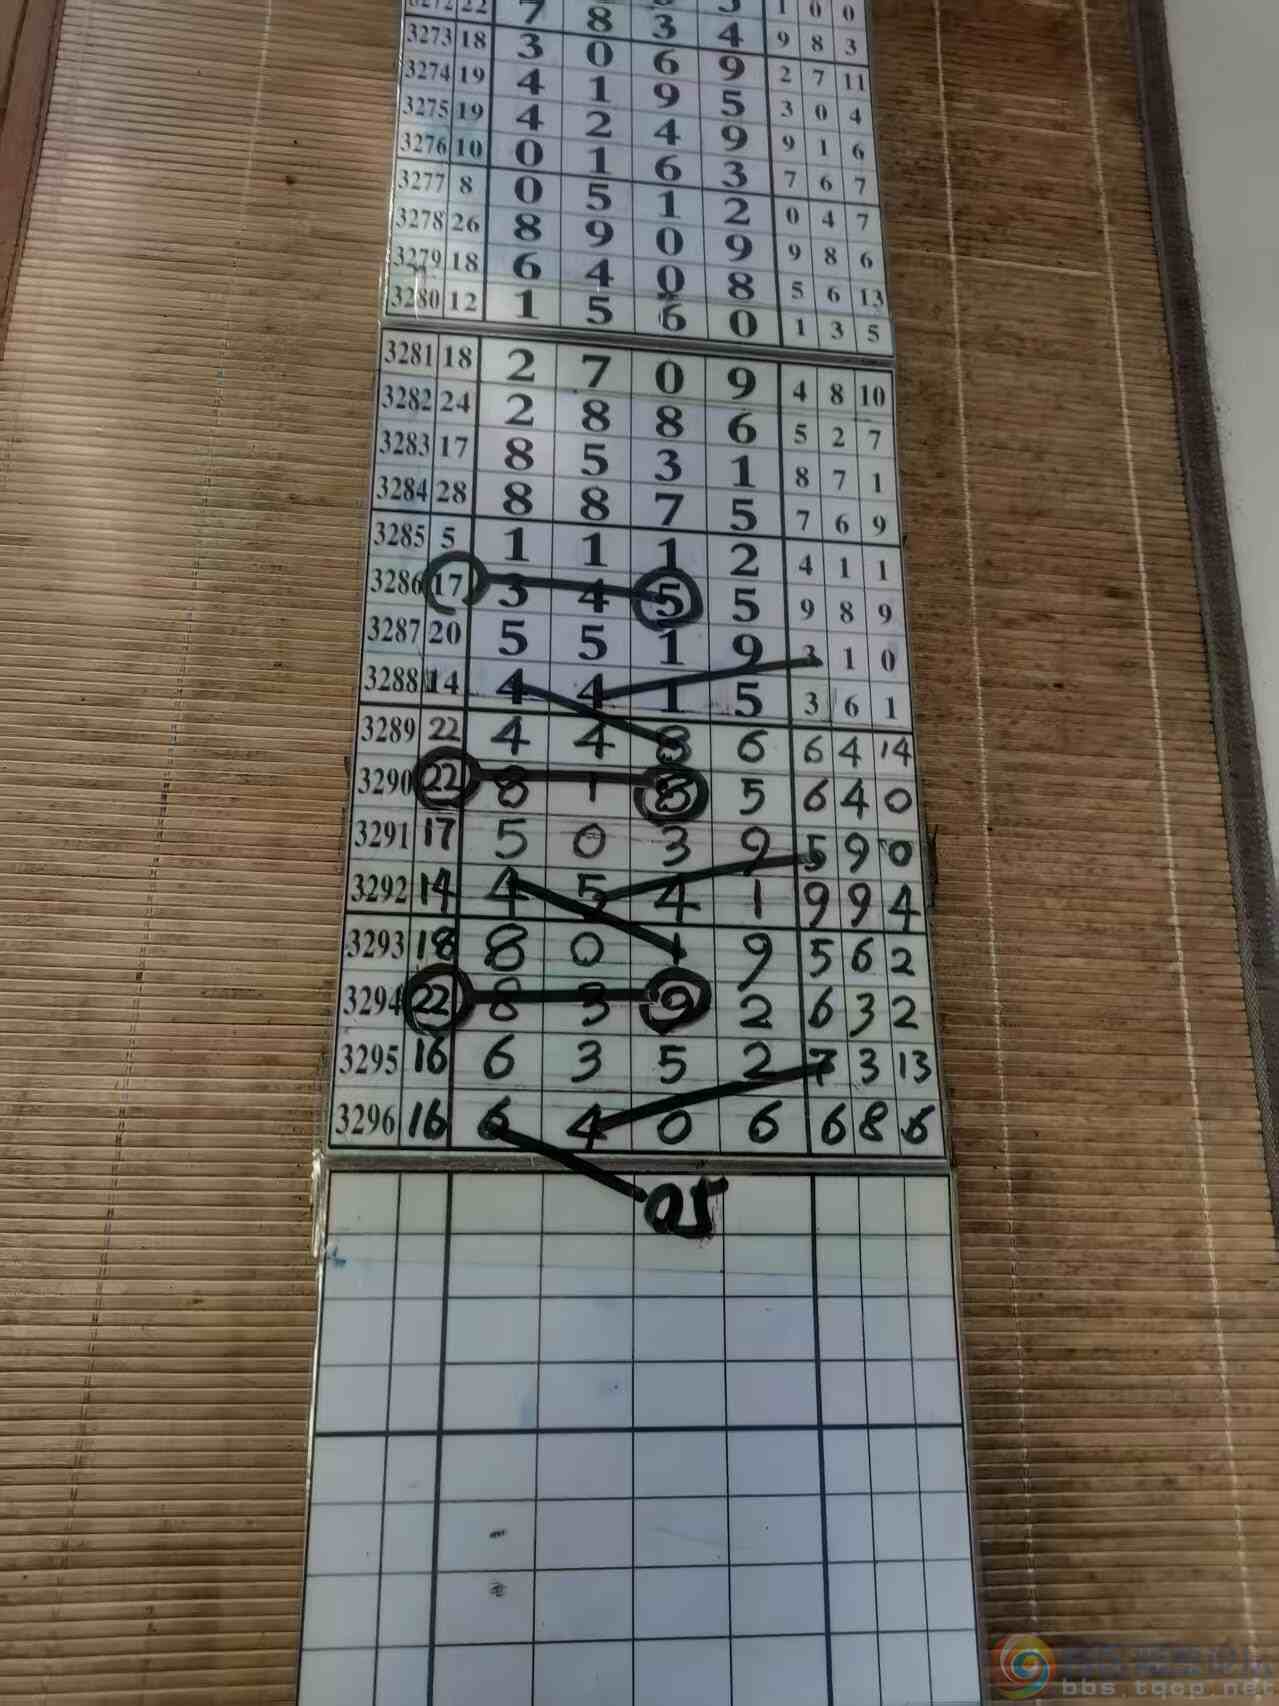 3272 22 7 8 3 1 0 0
3273 18 3 0 6 4 9 8 3
3274 19 4 1 9 9 2 7 11
3275 19 4 2 4 5 3 0 4
3276 10 0 1 6 9 9 1 6
3277 8 0 5 1 3 7 6 7
3278 26 8 9 0 2 0 4 7
3279 18 6 4 0 9 9 8 6
3280 12 1 5 6 8 5 6 13
0 1 3 5
3281 18 2 7 0 9 4 8 10
3282 24 2 8 8 6 5 2 7
3283 17 8 5 3 1 8 7 1
3284 28 8 8 7 5 7 6 9
3285 5 1 1 1 2 4 1 1
3286 17 3 4 5 5 9 8 9
3287 20 5 5 1 9 3 1 0
3288 14 4 4 1 5 3 6 1
3289 22 4 4 8 6 6 4 14
3290 22 8 1 8 5 6 4 0
3291 17 5 0 3 9 5 9 0
3292 14 4 5 4 1 9 9 4
3293 18 8 0 1 9 5 6 2
3294 22 8 3 9 2 6 3 2
3295 16 6 3 5 2 7 3 13
3296 16 6 4 0 6 6 8 6
05
bbs.tqcp.net